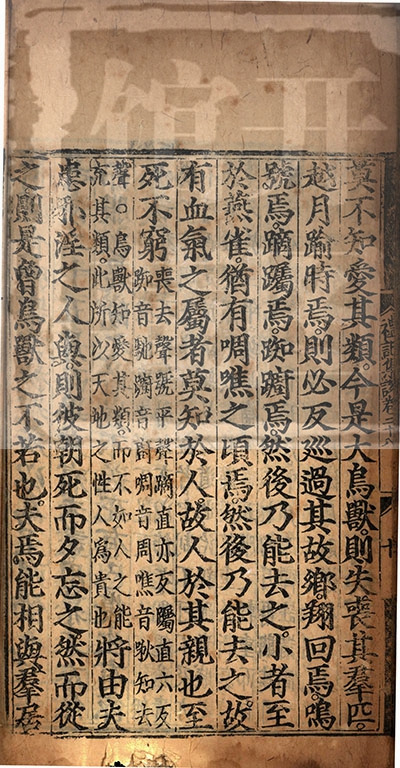 莫不知愛其類。今是大鳥獸則失喪其羣匹。
越月踰時焉。則必反巡過其故鄉。翔回焉。鳴
號焉。蹢躅焉。踟躕焉。然後乃能去之。小者至
於燕雀。猶有啁噍之頃焉。然後乃能去之。故
有血氣之屬者莫知於人。故人於其親也。至
死不窮
喪去聲號平聲蹢直亦反躅直六反
踟音馳躕音廚啁音周噍音啾知去
聲。鳥獸知愛其類而不如人之能
充其類。此所以天地之性人爲貴也
將由夫
患邪淫之人與。則彼朝死而夕忘之。然而從
之。則是曾鳥獸之不若也。夫焉能相與羣居